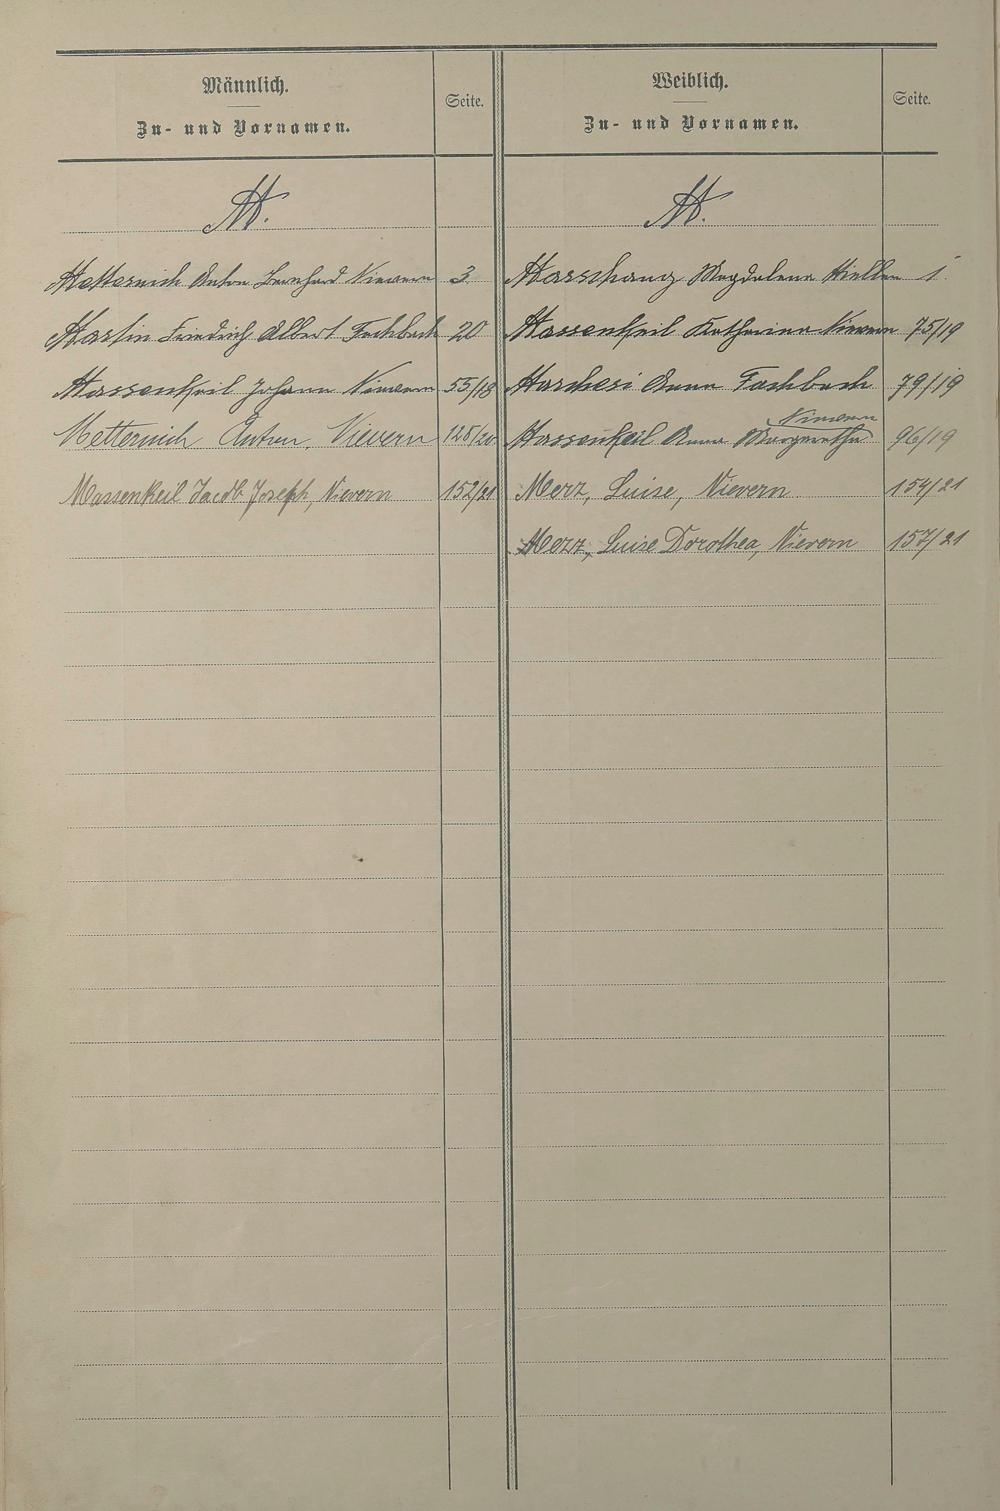 Männlich.
Zu- und Vornamen.
Seite.
M.
Metternich Anton Bernhard Nievern 3
Martin Friedrich Albert Fachbach 20
Massenkeil Johann Nievern 55/18
Metternich Anton, Nievern 128/20
Massenkeil Jacob Joseph, Nievern 152/21
Weiblich.
Zu- und Vornamen.
Seite.
M.
Magdalena Miellen 1
Massenkeil Katharina Nievern 75/19
Marchesi Anna Fachbach 79/19
Nievern
Massenkeil Anna Margaretha 96/19
Merz, Luise, Nievern 154/21
Merz, Luise Dorothea, Nievern 157/21